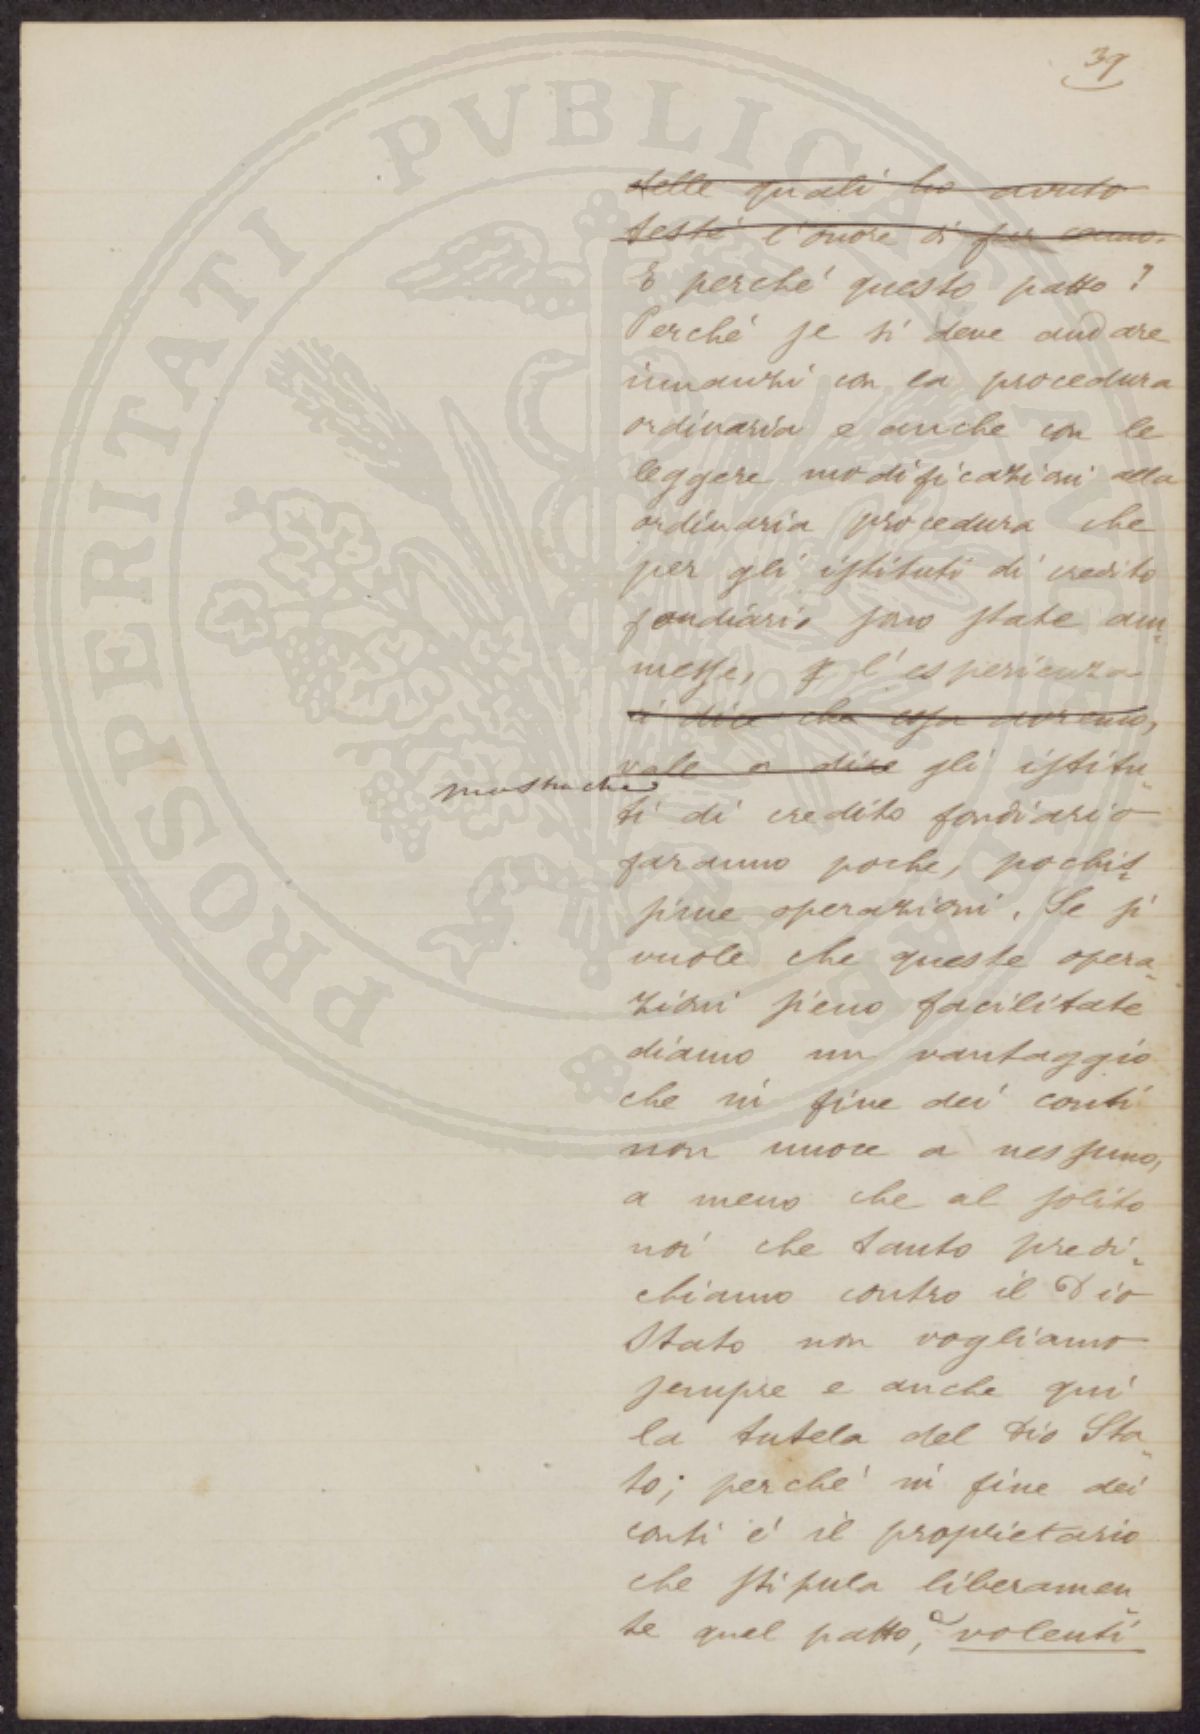 39
delle quali ho avuto
testé l'onore di far cenno.
E perché questo patto?
Perché se si deve andare
innanzi con la procedura
ordinaria e anche con le
leggere modificazioni alla
ordinaria procedura che
per gli istituti di credito
fondiario sono state am-
messe, l'esperienza
ci dice che cosa avremo,
vale a dire gli istitu-
mostra che
ti di credito fondiario
faranno poche, pochis-
sime operazioni. Se si
vuole che queste opera-
zioni sieno facilitate
diamo un vantaggio
che in fine dei conti
non nuoce a nessuno,
a meno che al solito
noi che tanto predi-
chiamo contro il Dio
Stato non vogliamo
sempre e anche qui
la tutela del Dio Sta-
to; perché in fine dei
conti é il proprietario
che stipula liberamen-
te quel patto, e volenti
PROSPERITATI PVBLICAE AVGENDAE